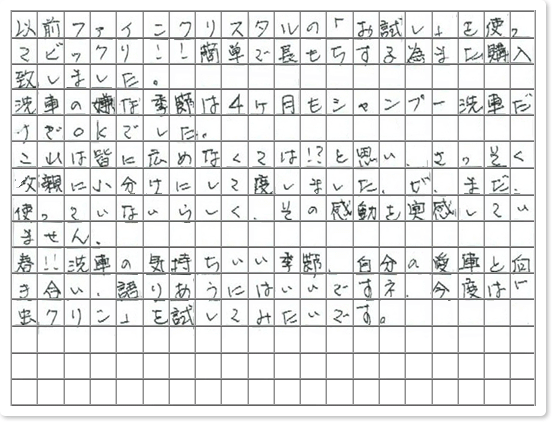 以前ファインクリスタルの「お試し」を使っ
てビックリ!!簡単で長もちする為また購入
致しました。
洗車の嫌な季節は4ヶ月もシャンプー洗車だ
けでOKでした。
これは皆に広めなくては!?と思い、さっそく
父親に小分けにして渡しました。が、まだ、
使っていないらしく、その感動を実感してい
ません。
春!!洗車の気持ちいい季節、自分の愛車と向
き合い、語りあうにはいいですネ、今度は「
虫クリン」を試してみたいです。